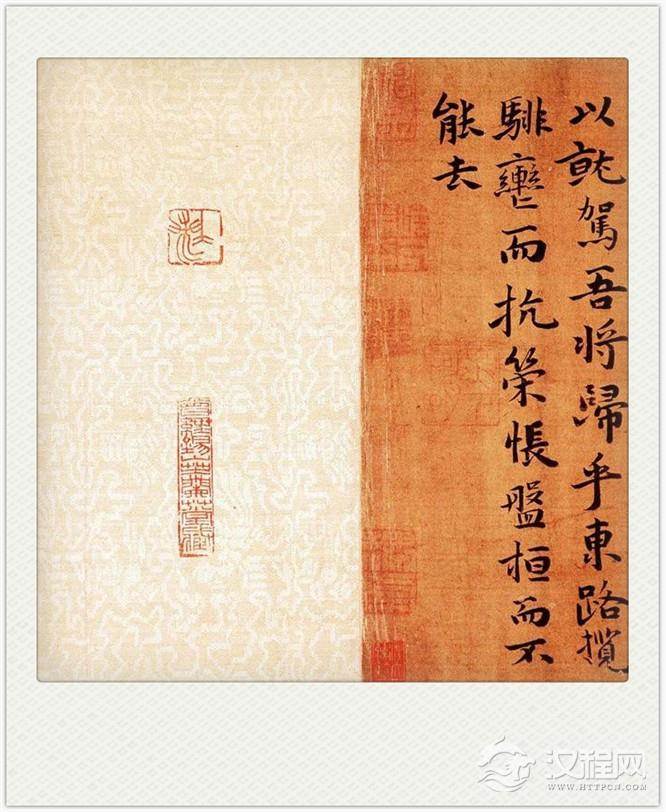 以就駕吾將歸乎東路攬
騑轡而抗策悵盤桓而不
能去
汉程网
WWW.HTTPCN.COM